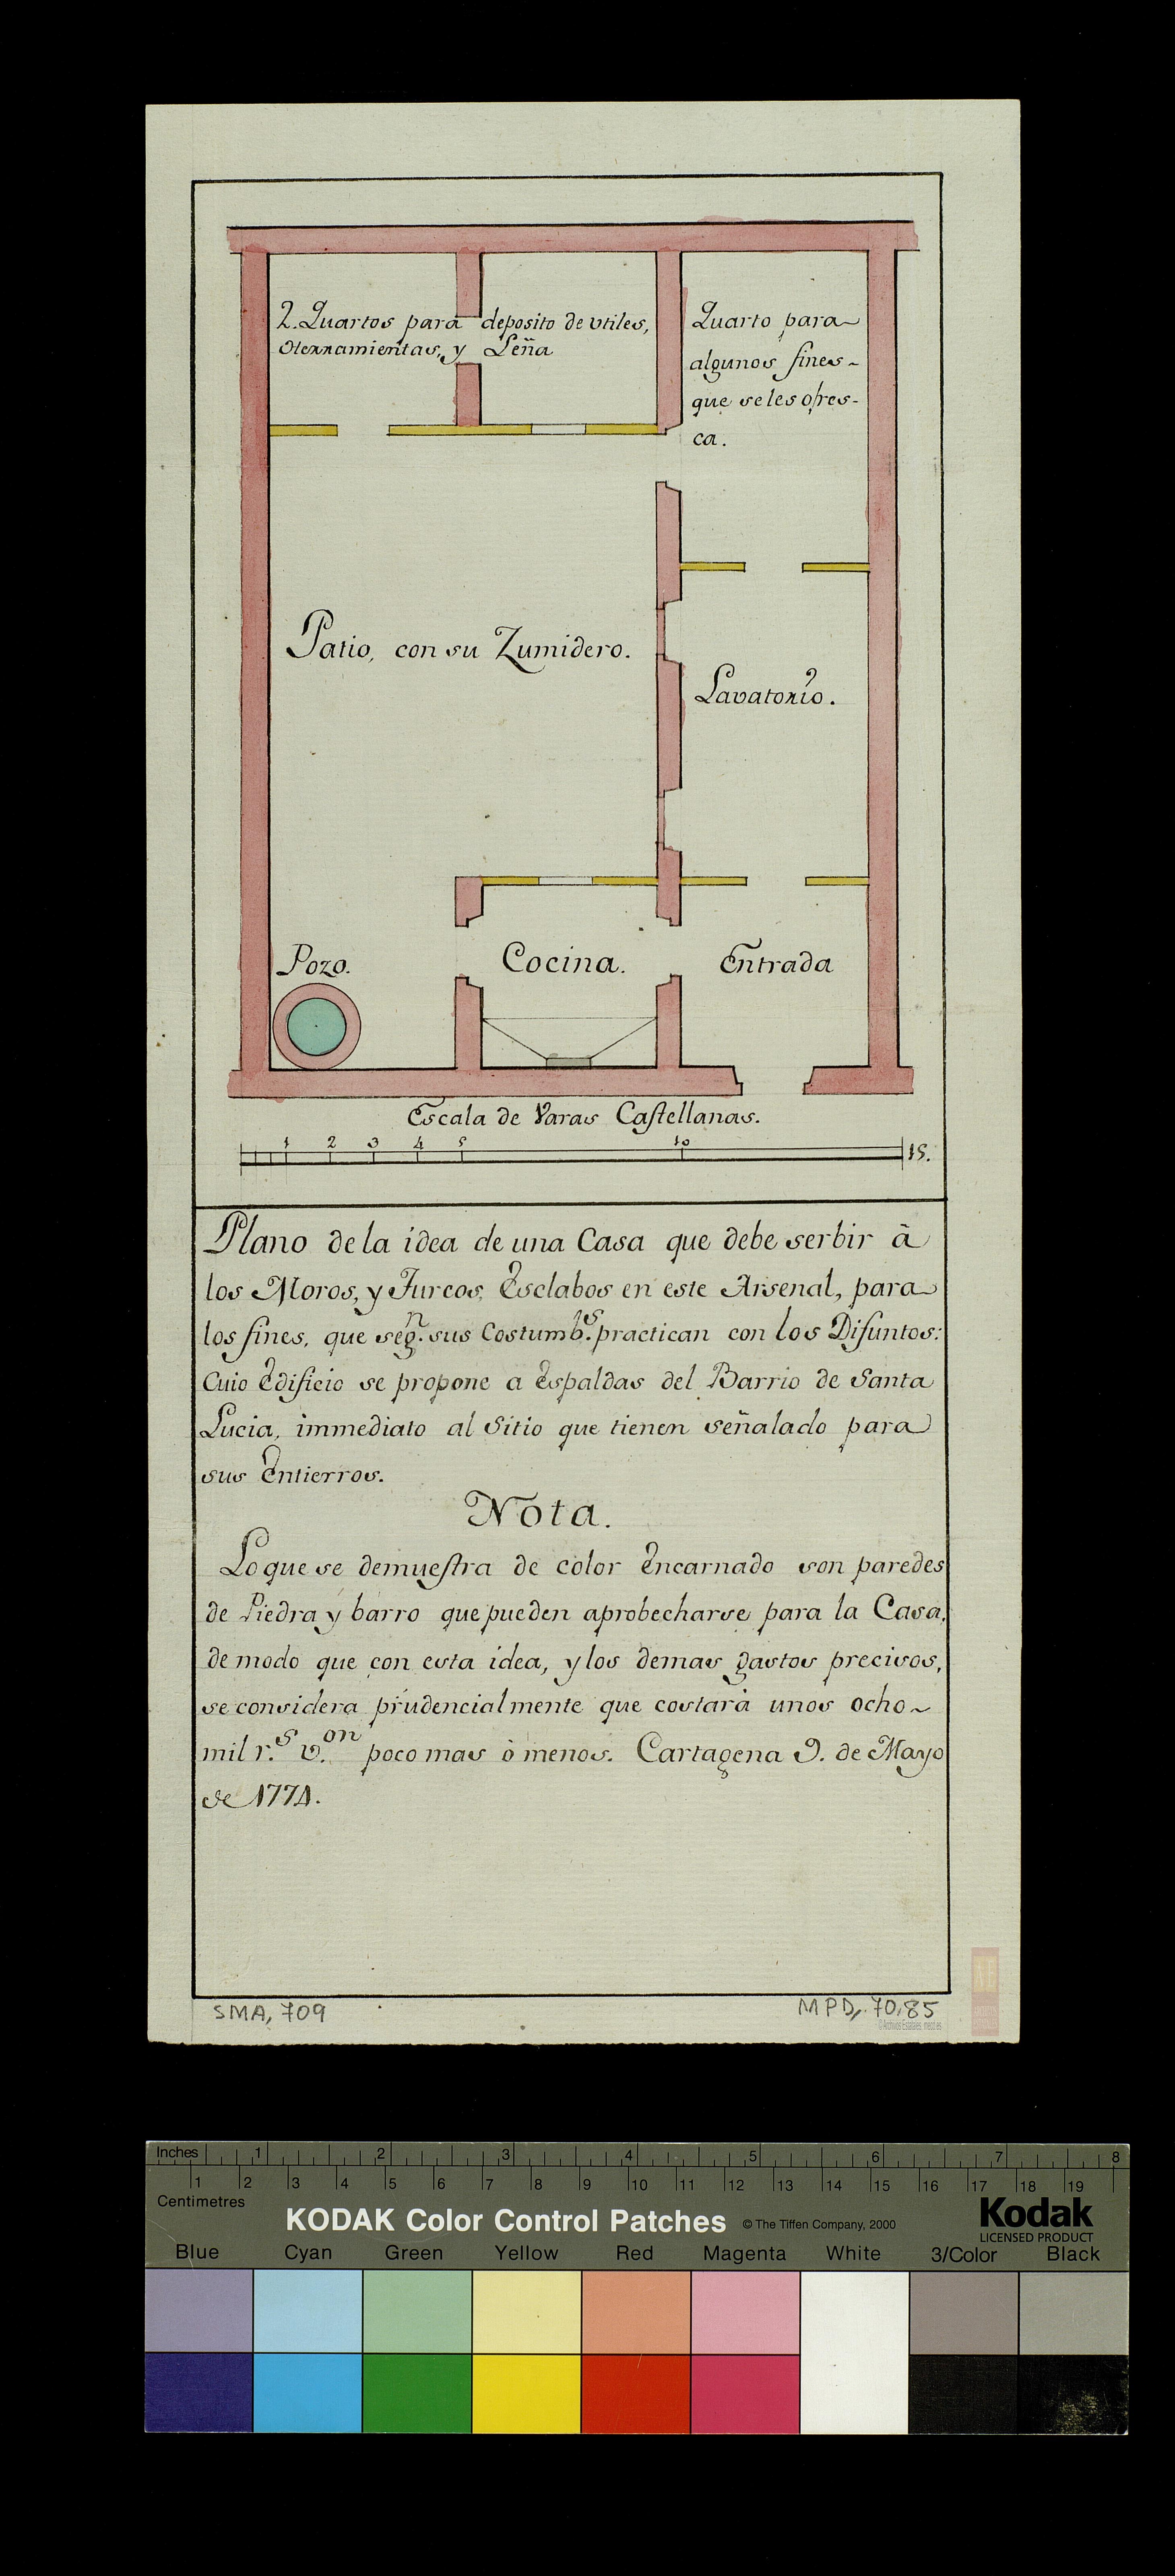 2. Quartos para deposito de vtiles,
Herramientas, y Leña
Quarto para
algunos fines
que se les ofres-
ca.
Patio, con su Zumidero.
Lavatorio.
Pozo.
Cocina.
Entrada
Escala de Varas Castellanas.
1 2 3 4 5 10 15.
Plano de la idea de una Casa que debe serbir â
los Moros, y Turcos, Esclabos en este Arsenal, para
los fines, que segn. sus Costumbs. practican con los Difuntos:
Cuio Edificio se propone a Espaldas del Barrio de Santa
Lucia, immediato al Sitio que tienen señalado para
sus Entierros.
Nota.
Lo que se demuestra de color Encarnado son paredes
de Piedra y barro que pueden aprobecharse para la Casa,
de modo que con esta idea, y los demas gastos precisos,
se considera prudencialmente que costarà unos ocho
mil r.s v.on poco mas ò menos. Cartagena 9. de Mayo
de 1774.
SMA, 709
MPD, 70,85
© Archivos Estatales, mecd.es
Inches 1 2 3 4 5 6 7 8
1 2 3 4 5 6 7 8 9 10 11 12 13 14 15 16 17 18 19
Centimetres
KODAK Color Control Patches © The Tiffen Company, 2000
Kodak
LICENSED PRODUCT
Blue Cyan Green Yellow Red Magenta White 3/Color Black